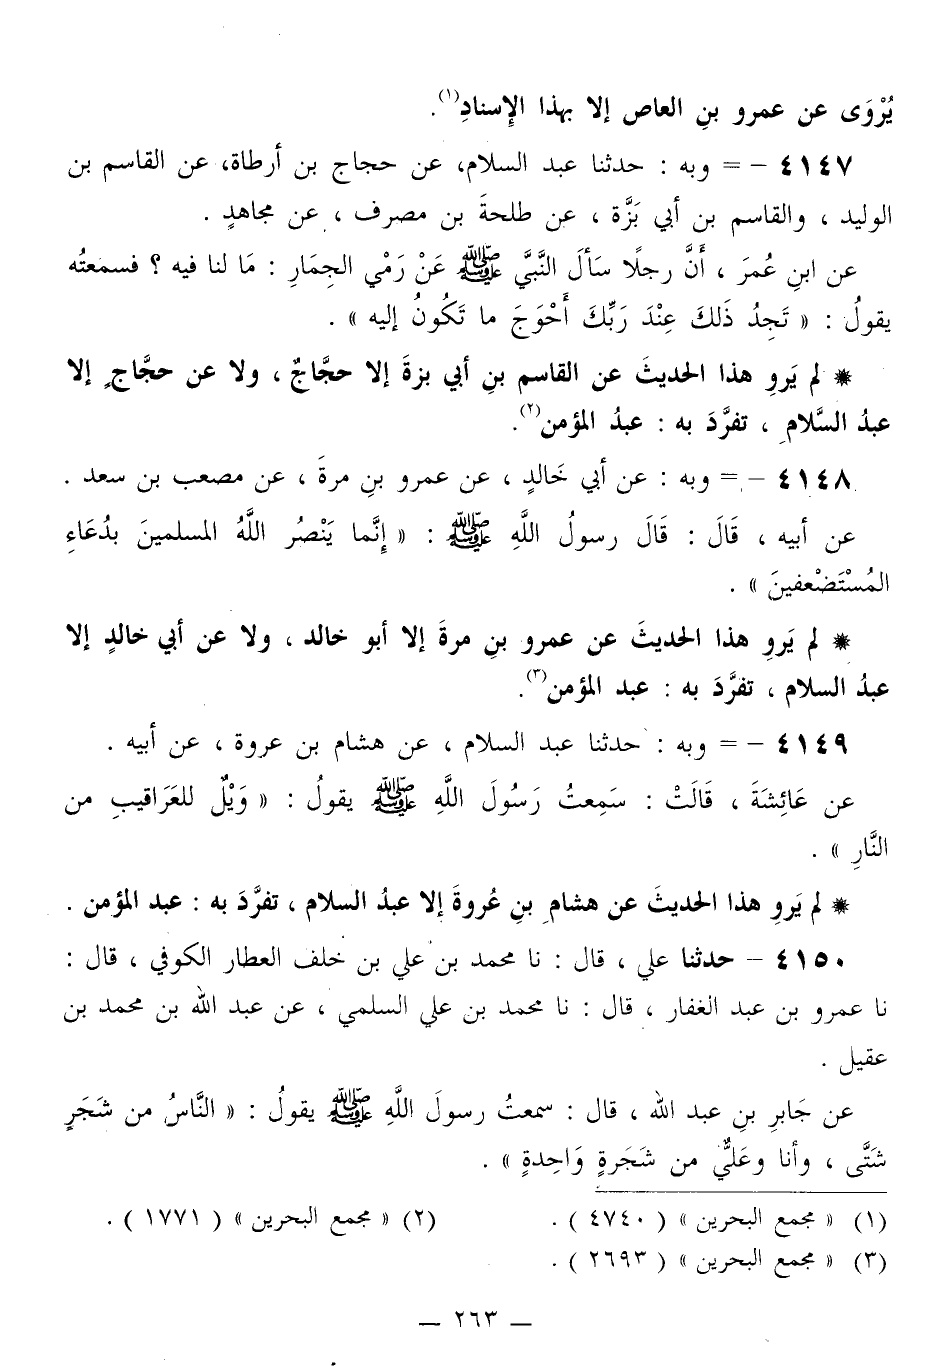 يُرْوَى عن عمرو بنِ العاص إلا بهذا الإِسنادِ(١).
٤١٤٧ – = وبه : حدثنا عبد السلام، عن حجاج بن أرطاة، عن القاسم بن
الوليد ، والقاسم بن أبي بَزَّة ، عن طلحةَ بن مصرف ، عن مجاهدٍ .
عن ابنِ عُمرَ ، أَنَّ رجلًا سَألَ النَّبيَّ ﷺ عَنْ رَمْي الجِمَارِ : مَا لنا فيه ؟ فسمعتُه
يقولُ : « تَجِدُ ذَلكَ عِنْدَ رَبِّكَ أَحْوَجَ ما تَكُونُ إليه » .
* لم يَروِ هذا الحديثَ عن القاسم بنِ أبي بزةَ إلا حجَّاجٌ ، ولا عن حجَّاجٍ إلا
عبدُ السَّلامِ ، تفرَّدَ به : عبدُ المؤمن(٢).
٤١٤٨ – = وبه : عن أبي خَالدٍ ، عن عمرو بنِ مرةَ ، عن مصعب بن سعد .
عن أبيه ، قَالَ : قَالَ رسولُ اللَّهِ ﷺ : « إِنَّما يَنْصُر اللَّهُ المسلمينَ بدُعَاءِ
المُسْتَضْعفينَ » .
* لم يَروِ هذا الحديثَ عن عمرو بنِ مرةَ إلا أبو خالد ، ولا عن أبي خالدٍ إلا
عبدُ السلام ، تفرَّدَ به : عبد المؤمن(٣).
٤١٤٩ – = وبه : حدثنا عبد السلام ، عن هشام بن عروة ، عن أبيه .
عن عَائِشَةَ ، قَالَتْ : سَمِعتُ رَسُولَ اللَّهِ ﷺ يقولُ : « وَيْلٌ للعَرَاقيبِ من
النَّارِ » .
* لم يَروِ هذا الحديثَ عن هشامِ بنِ عُروةَ إلا عبدُ السلام ، تفرَّدَ به : عبد المؤمن .
٤١٥٠ – حدثنا علي ، قال : نا محمد بن علي بن خلف العطار الكوفي ، قال :
نا عمرو بن عبد الغفار ، قال : نا محمد بن علي السلمي ، عن عبد الله بن محمد بن
عقيل .
عن جَابرِ بنِ عبد الله ، قال : سمعتُ رسولَ اللَّهِ ﷺ يقولُ : « النَّاسُ من شَجَرٍ
شَتَّى ، وأنا وعَليٌّ من شَجَرةٍ وَاحِدةٍ » .
(١) « مجمع البحرين » ( ٤٧٤٠ ) . (٢) « مجمع البحرين » ( ١٧٧١ ) .
(٣) « مجمع البحرين » ( ٢٦٩٣ ) .
– ٢٦٣ –